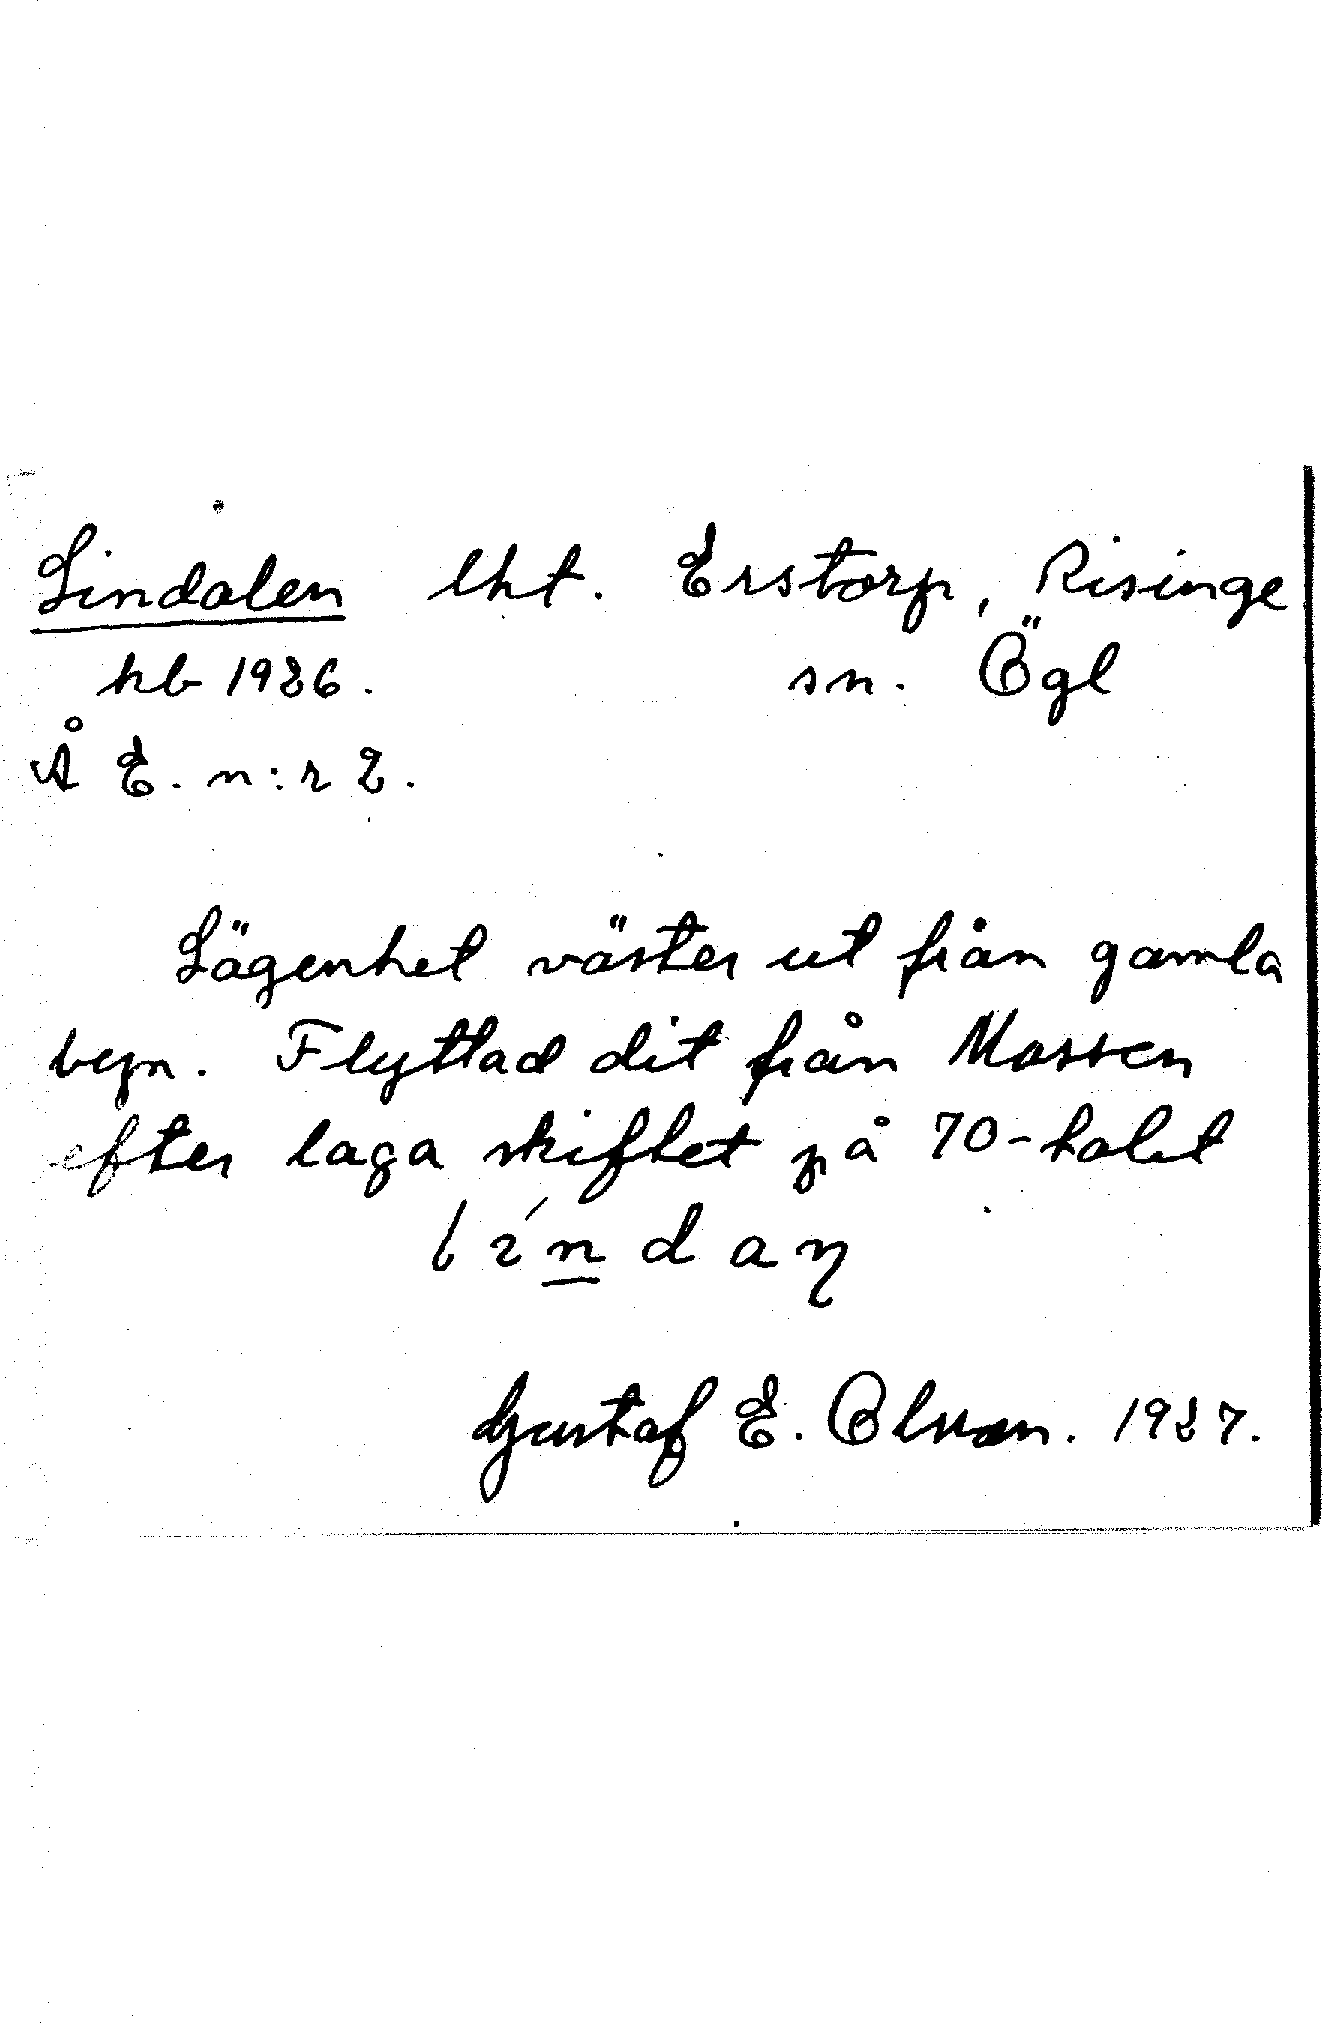 Lindalen lht. Erstorp, Risinge
hb 1926. sn. Ögl
Å E. n:r 2.
Lägenhet väster ut från gamla
byn. Flyttad dit från Mossen
efter laga skiftet på 70-talet
Gustaf E. Olsson. 1927.